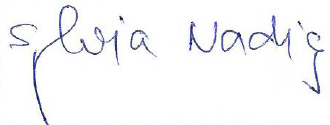 Sylvia Nadig